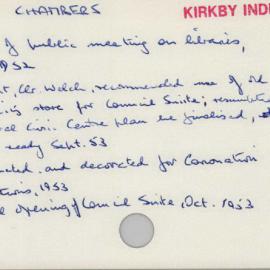 CHAMBERS
KIRKBY INDE
of public meeting on libraries,
1952
Clr. Welch, recommended use of old
store for Council Suite;
Civic Centre plan be finalised,
ready Sept. 53
and decorated for Coronation
1953
opening of Council Suite, Oct. 1953